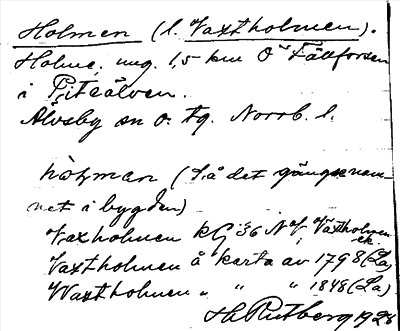 Holmen (l. Vaxtholmen).
Holme, ung. 1,5 km O Fällforsen
i Piteälven.
Älvsby sn o. tg. Norrb. l.
hòɫman (Så det gängse nam-
net i bygden)
Vaxholmen kG 36 NV, Växtholmen ek.
Vaxtholmen å karta av 1798 (La)
Waxtholmen " " " 1848 (La)
H. Rutberg 1928